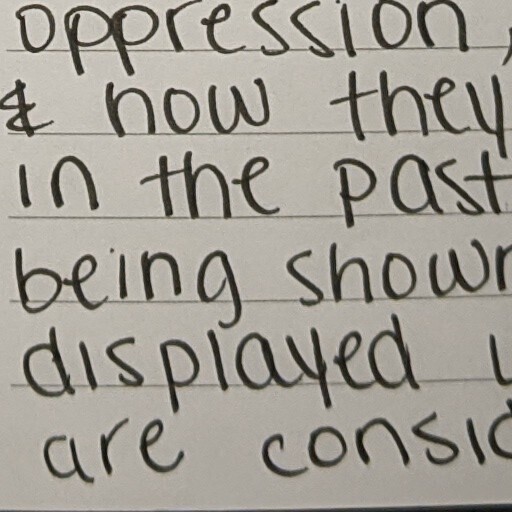 oppression,
& how they
in the past
being shown
displayed
are consid